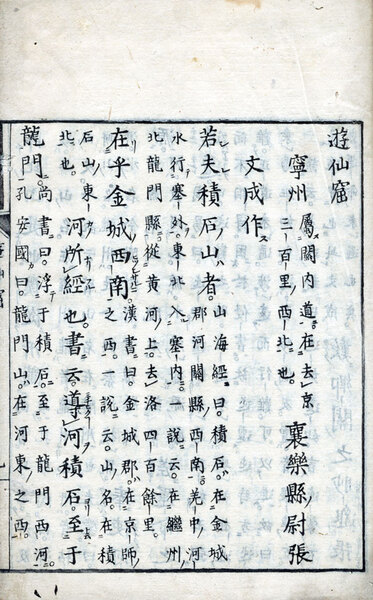 遊仙窟
寧州屬關内道在去京三百里西北也襄樂縣尉張
文成作
若夫積石山者山海經曰積石在金城郡河關縣西南羌中河
水行塞外東北入塞内一説云在繼州北龍門縣從黄河上去洛四百餘里
在乎金城西南漢書曰金城郡在京師之西一説云山名在積石山東北也
河所經也書云導河積石至于
龍門尚書曰浮于積石至于龍門西河孔安國曰龍門山在河東之西